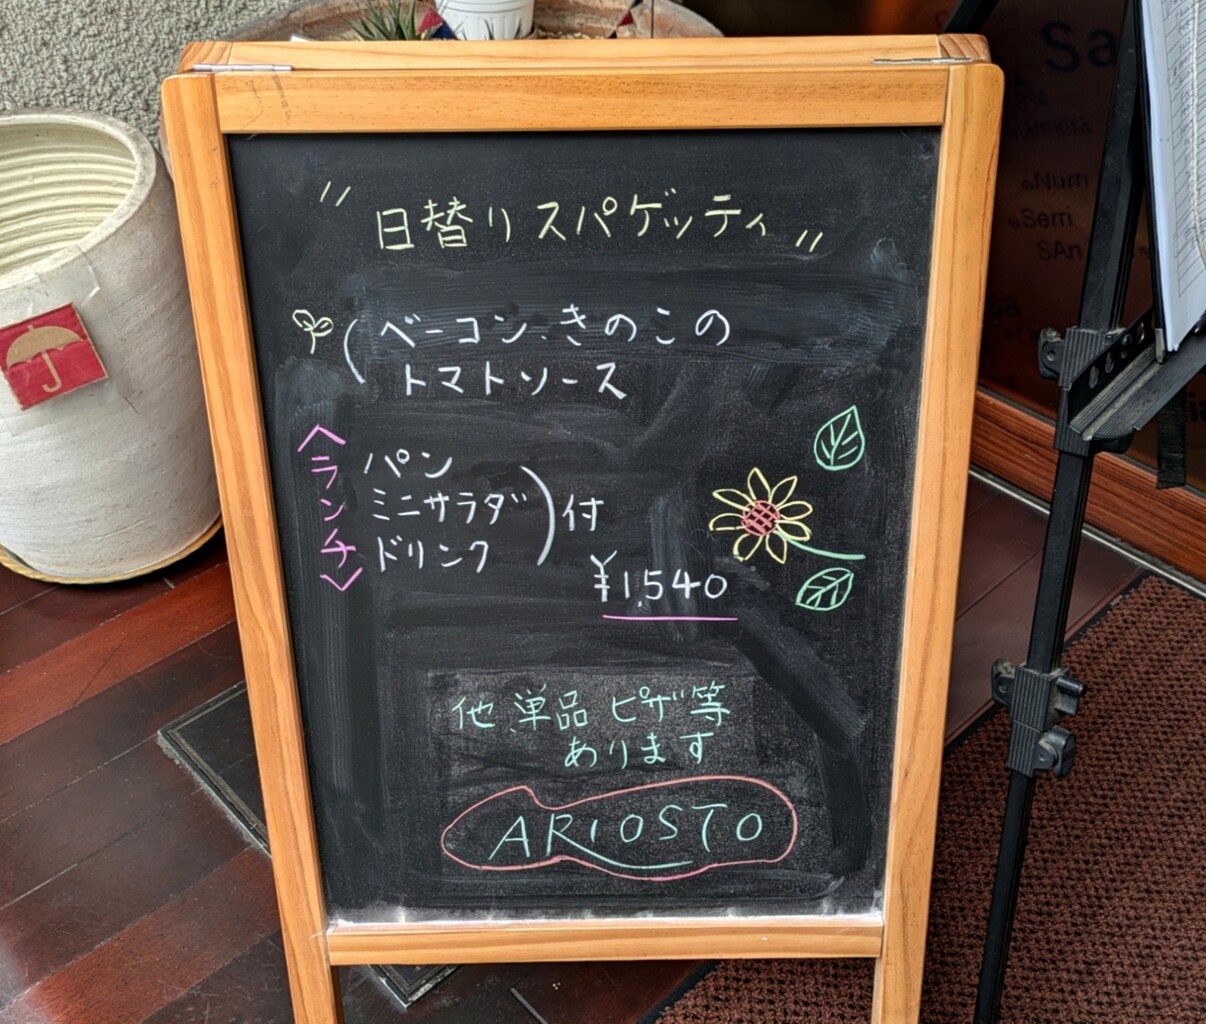 〃日替りスパゲッティ〃
(ベーコン、きのこの
トマトソース
<ランチ>
パン
ミニサラダ
ドリンク
)付
¥1,540
他、単品 ピザ等
あります
ARIOSTO
Sa
Num
Semi
SAn